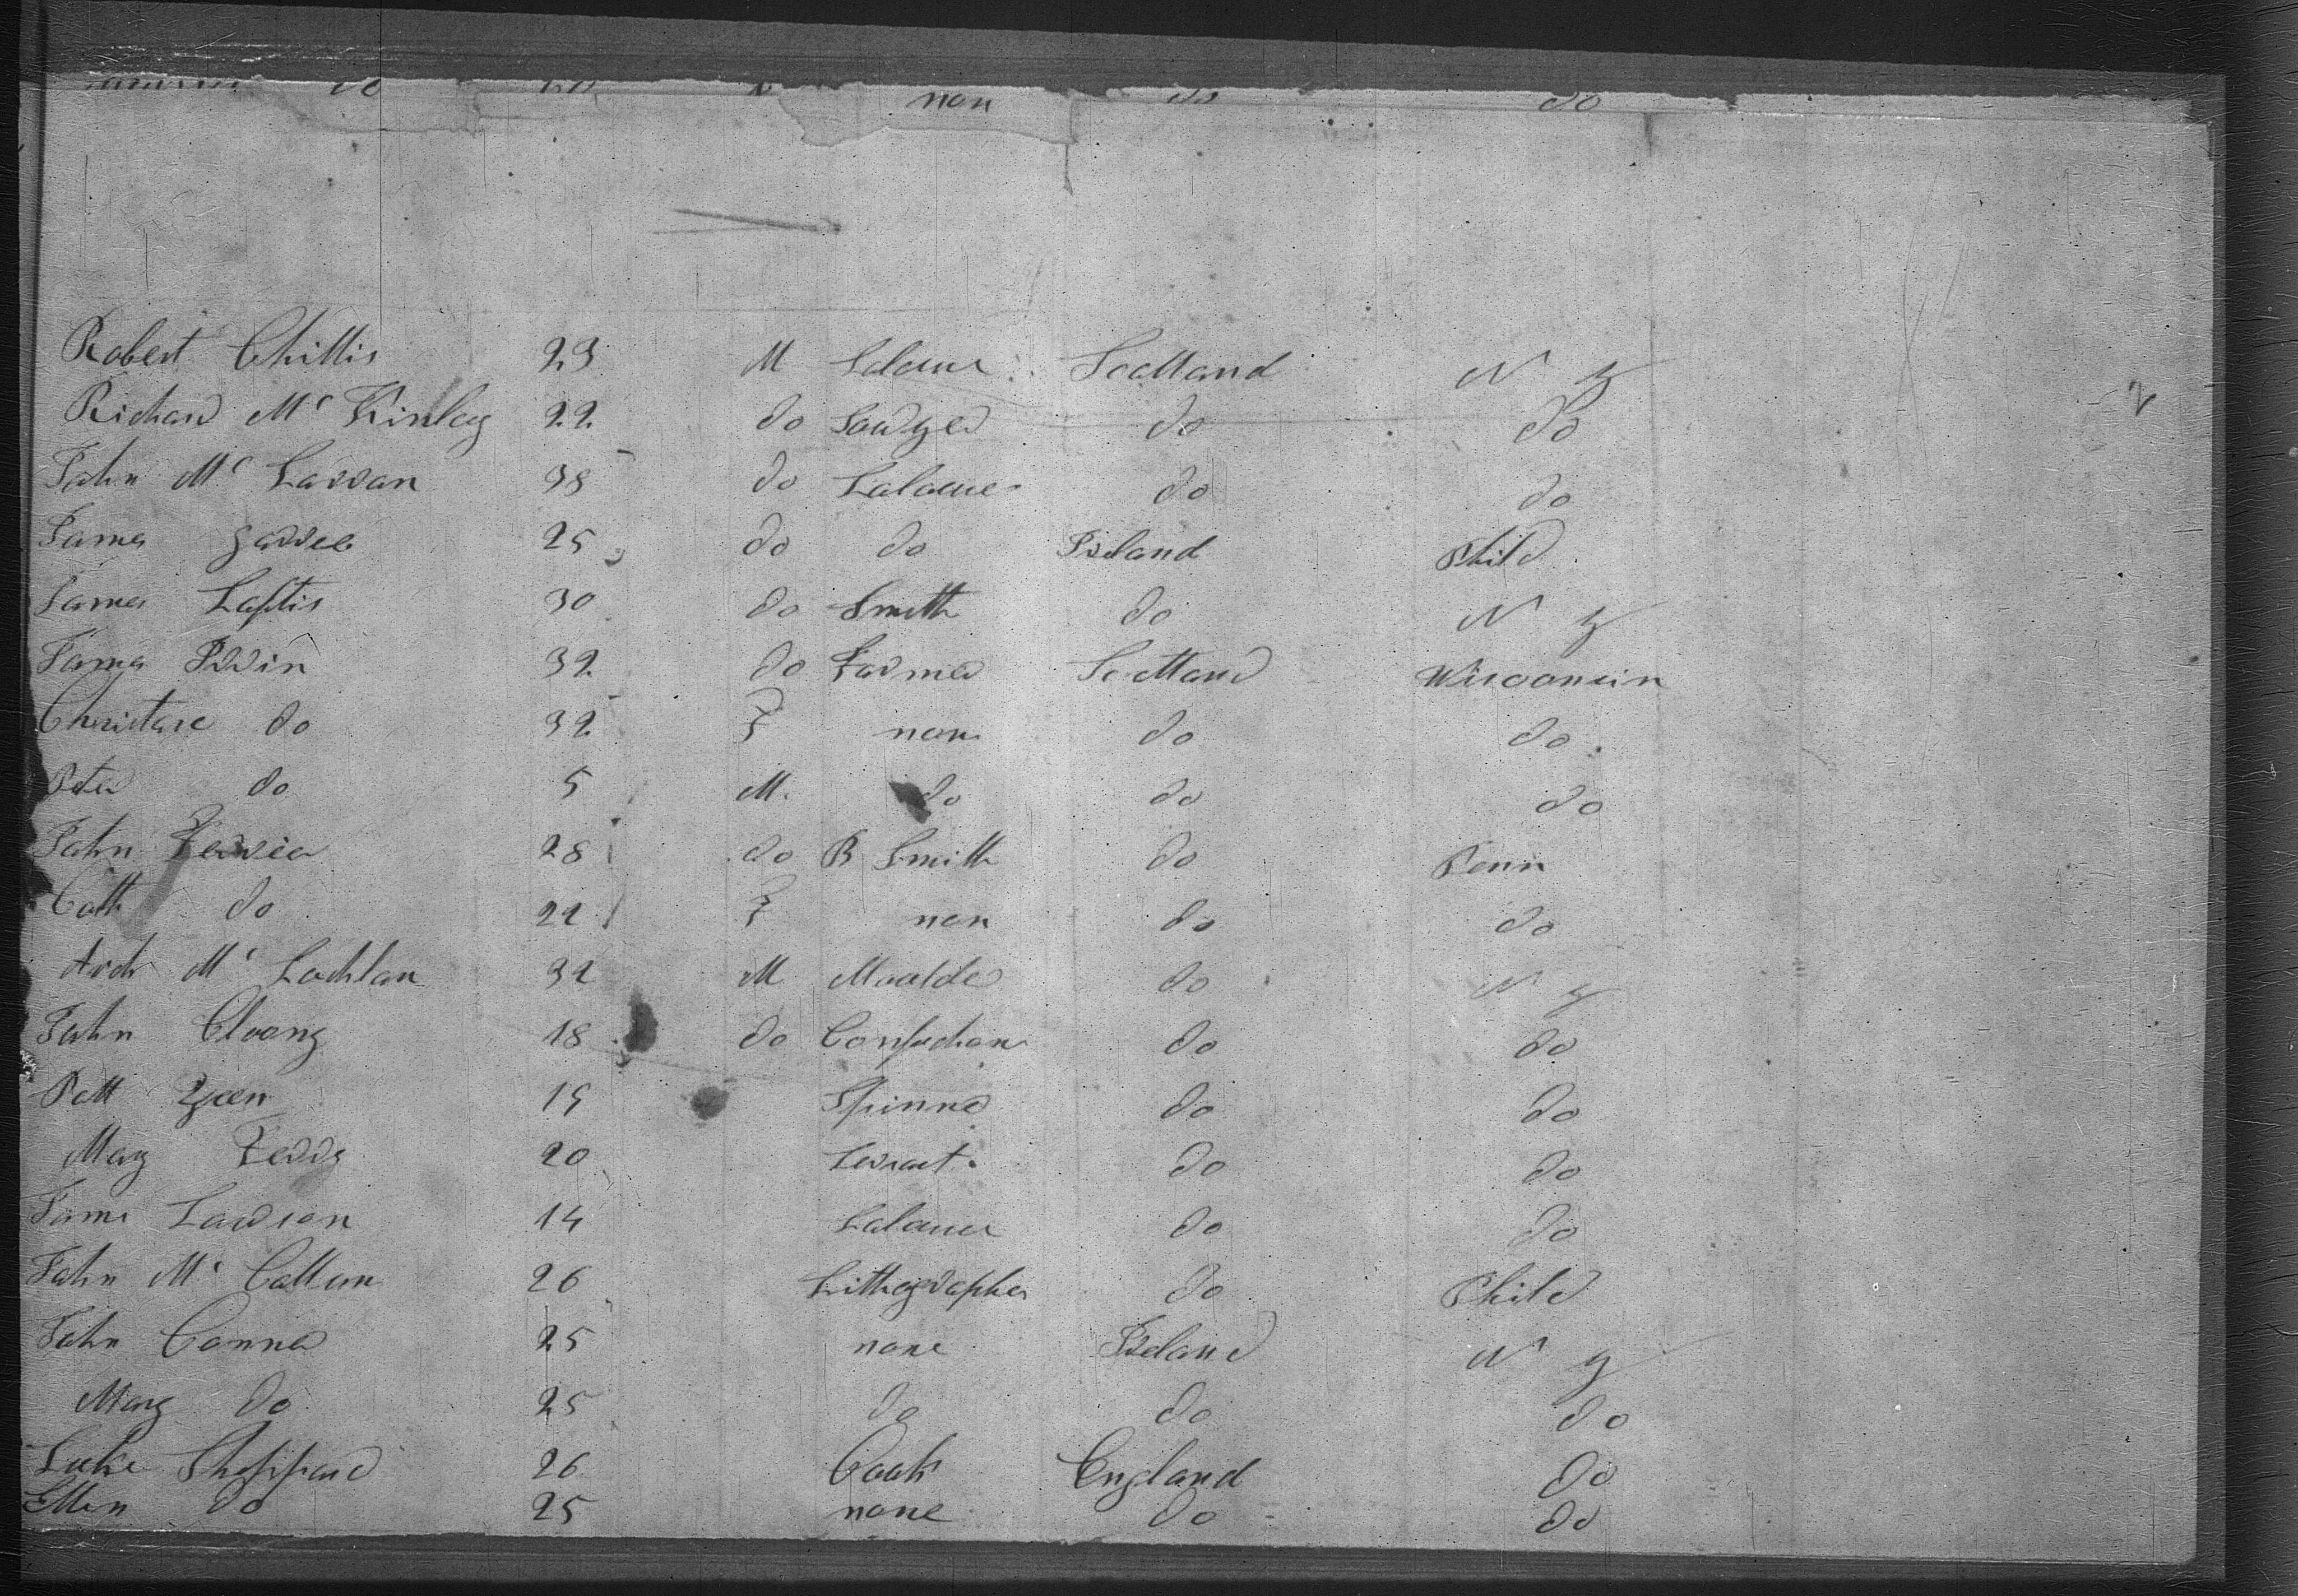 do non do do
Robert Chillis 23 M Labour Scotland N Y
Richard Mc Kinley 22 do Sawyer do do
John Mc Larran 38 do Labour do do
James 25 do do Ireland Phild
James Laftis 30 do Smith do N Y
James Irvin 32 do Farmer Scotland Wisconsin
do 32 F non do do
Peter do 5 M do do do
John 28 do B Smith do Penn
Cath do 22 F non do do
Arch Mc Lachlan 32 M Moulder do N Y
John 18 do do do
Patt 19 Spinner do do
Mary 20 do do
James Lawson 14 Labour do do
John Mc Callum 26 Lithographer do Phild
John Conner 25 none Ireland N Y
Mary do 25 do do do
Luke Sheppard 26 Cook England do
Ellen do 25 none do do